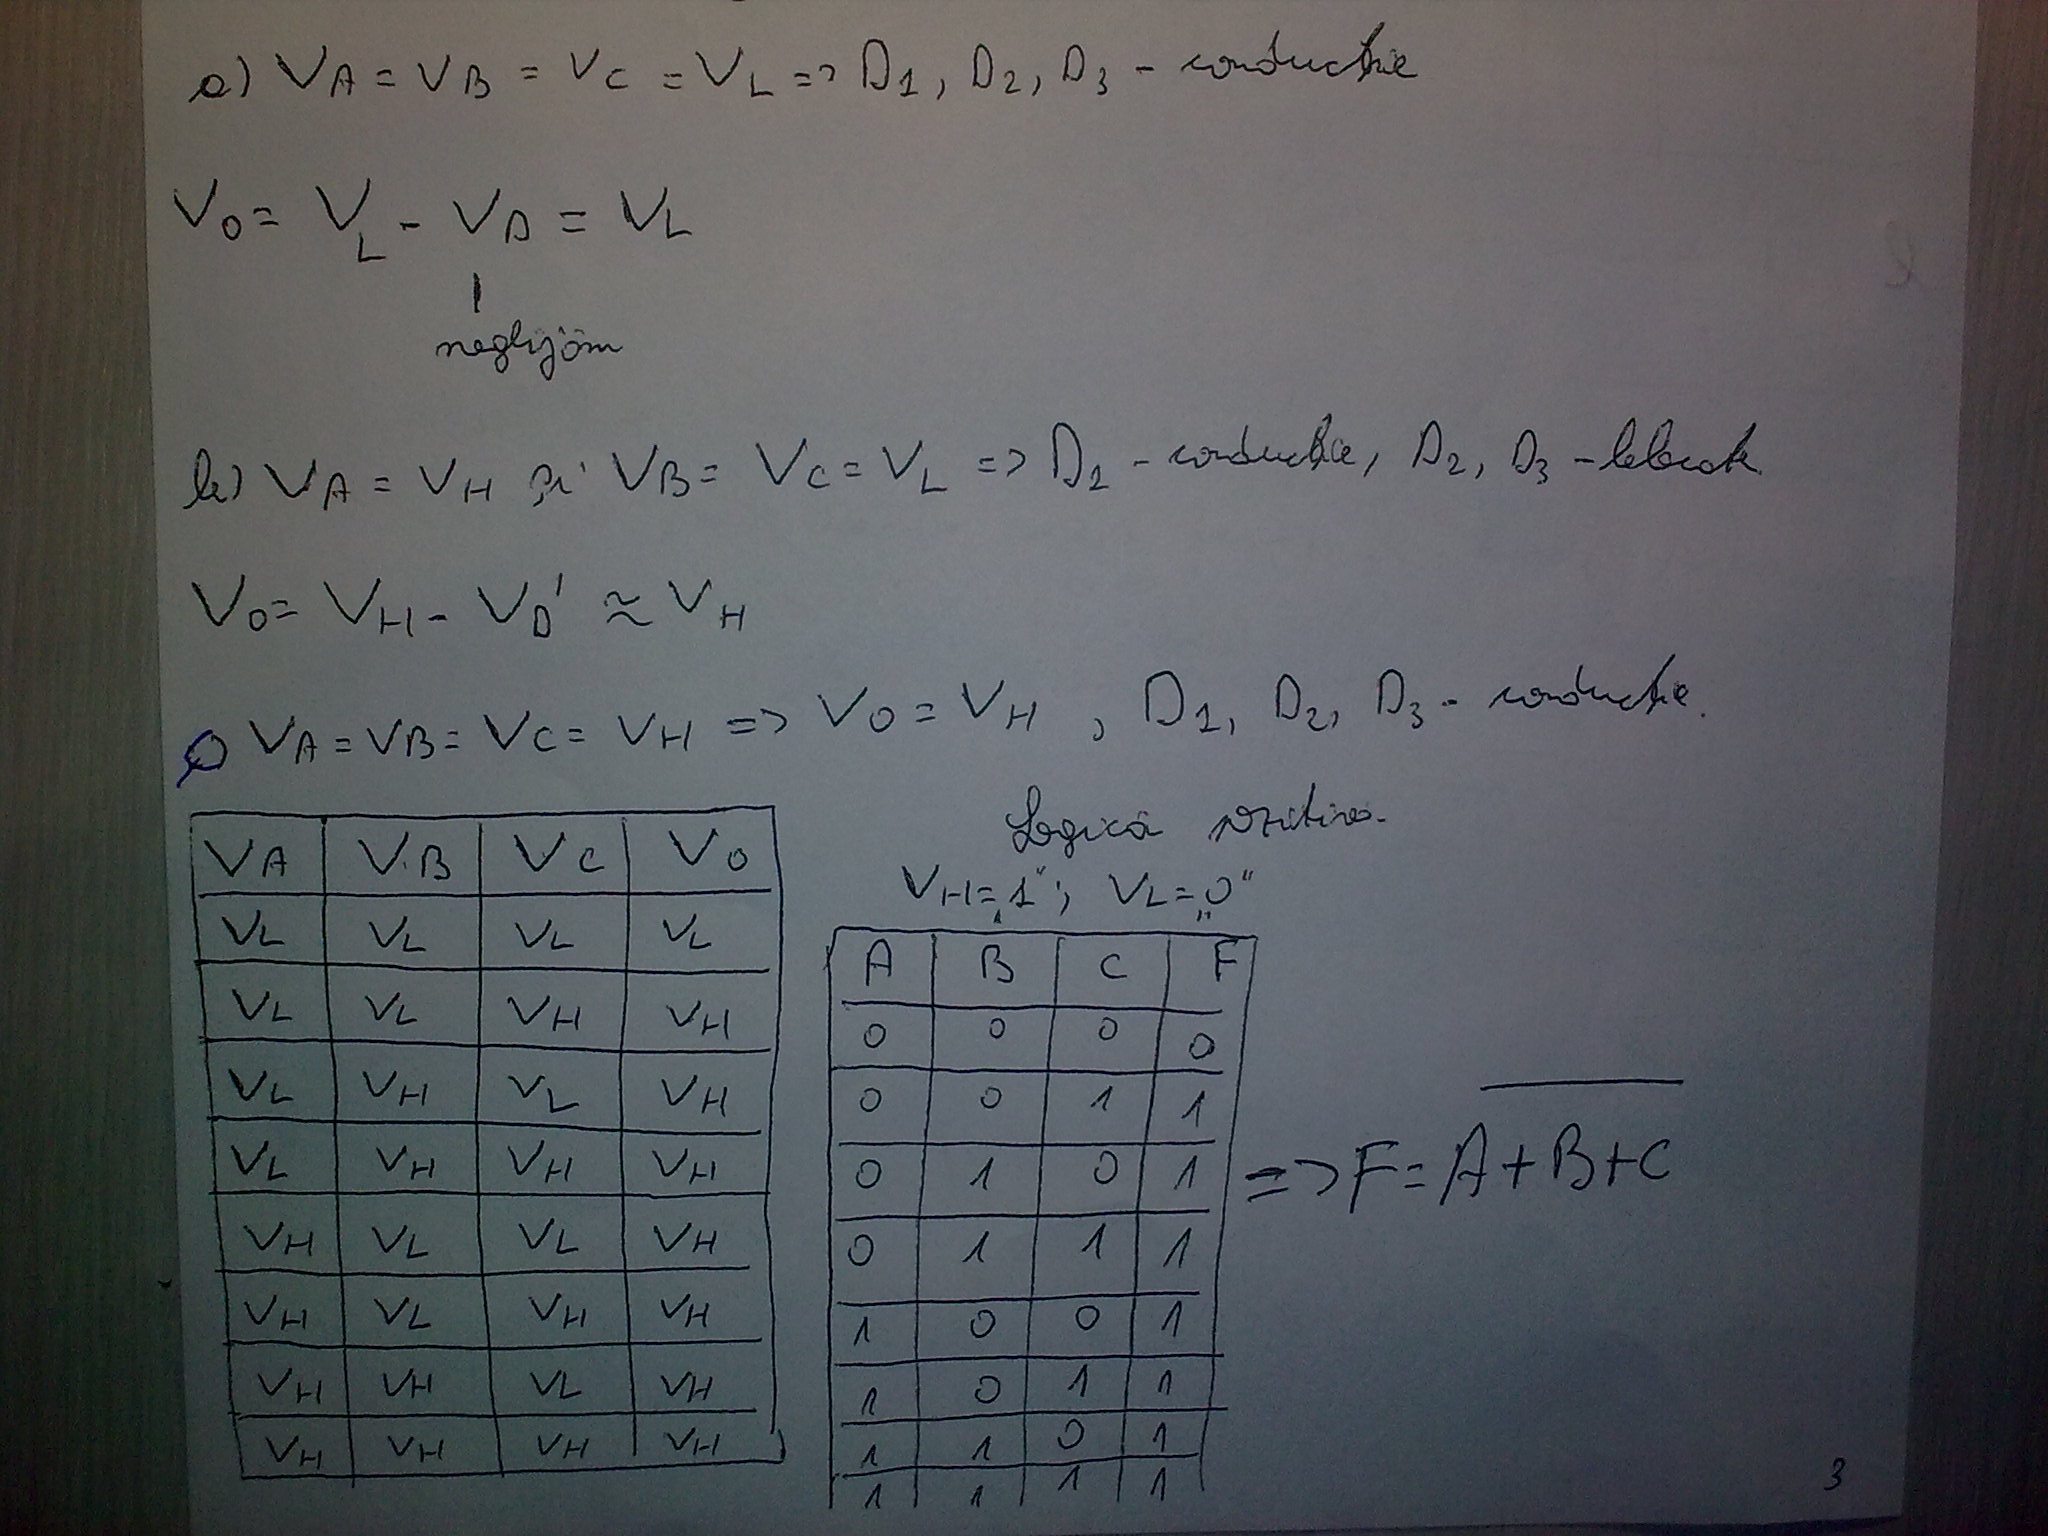 a) VA = VB = VC = VL => D1, D2, D3 - conductie
VO = VL - VD = VL
neglijăm
b) VA = VH și VB = VC = VL => D1 - conductie, D2, D3 - blocate
VO = VH - VD' ≈ VH
c) VA = VB = VC = VH => VO = VH, D1, D2, D3 - conductie.
Logică pozitivă.
VH = „1"; VL = „0"
VA VB VC VO
VL VL VL VL
VL VL VH VH
VL VH VL VH
VL VH VH VH
VH VL VL VH
VH VL VH VH
VH VH VL VH
VH VH VH VH
A B C F
0 0 0 0
0 0 1 1
0 1 0 1
0 1 1 1
1 0 0 1
1 0 1 1
1 1 0 1
1 1 1 1
=> F = A + B + C
3